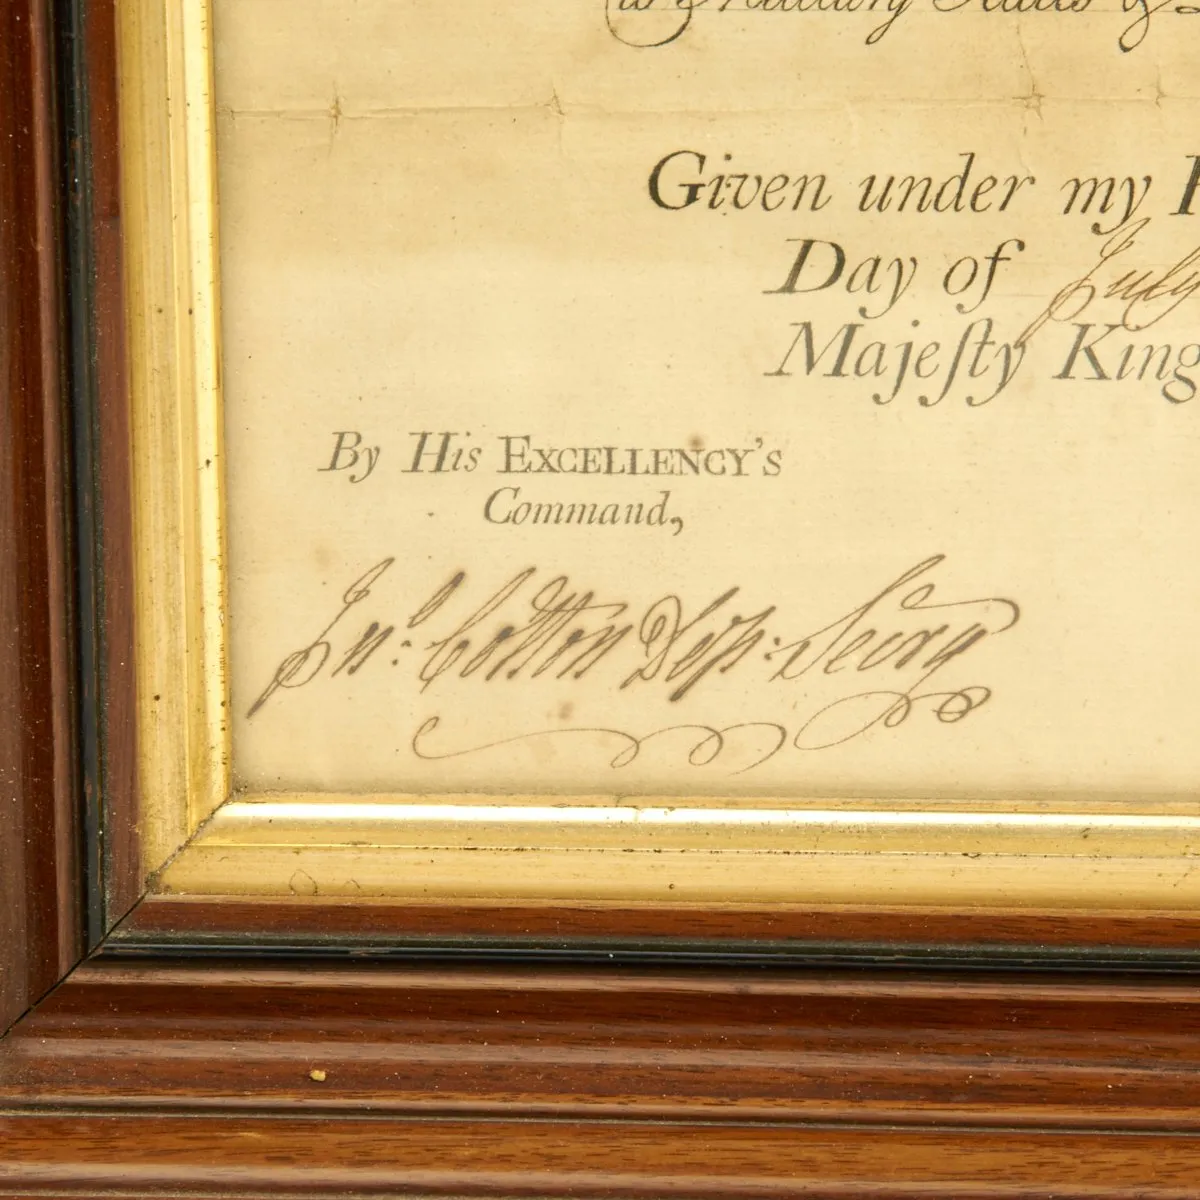 Military
Given under my
Day of July
Majeſty King
By His EXCELLENCY'S
Command,
Jnº: Cotton Depy: Secry